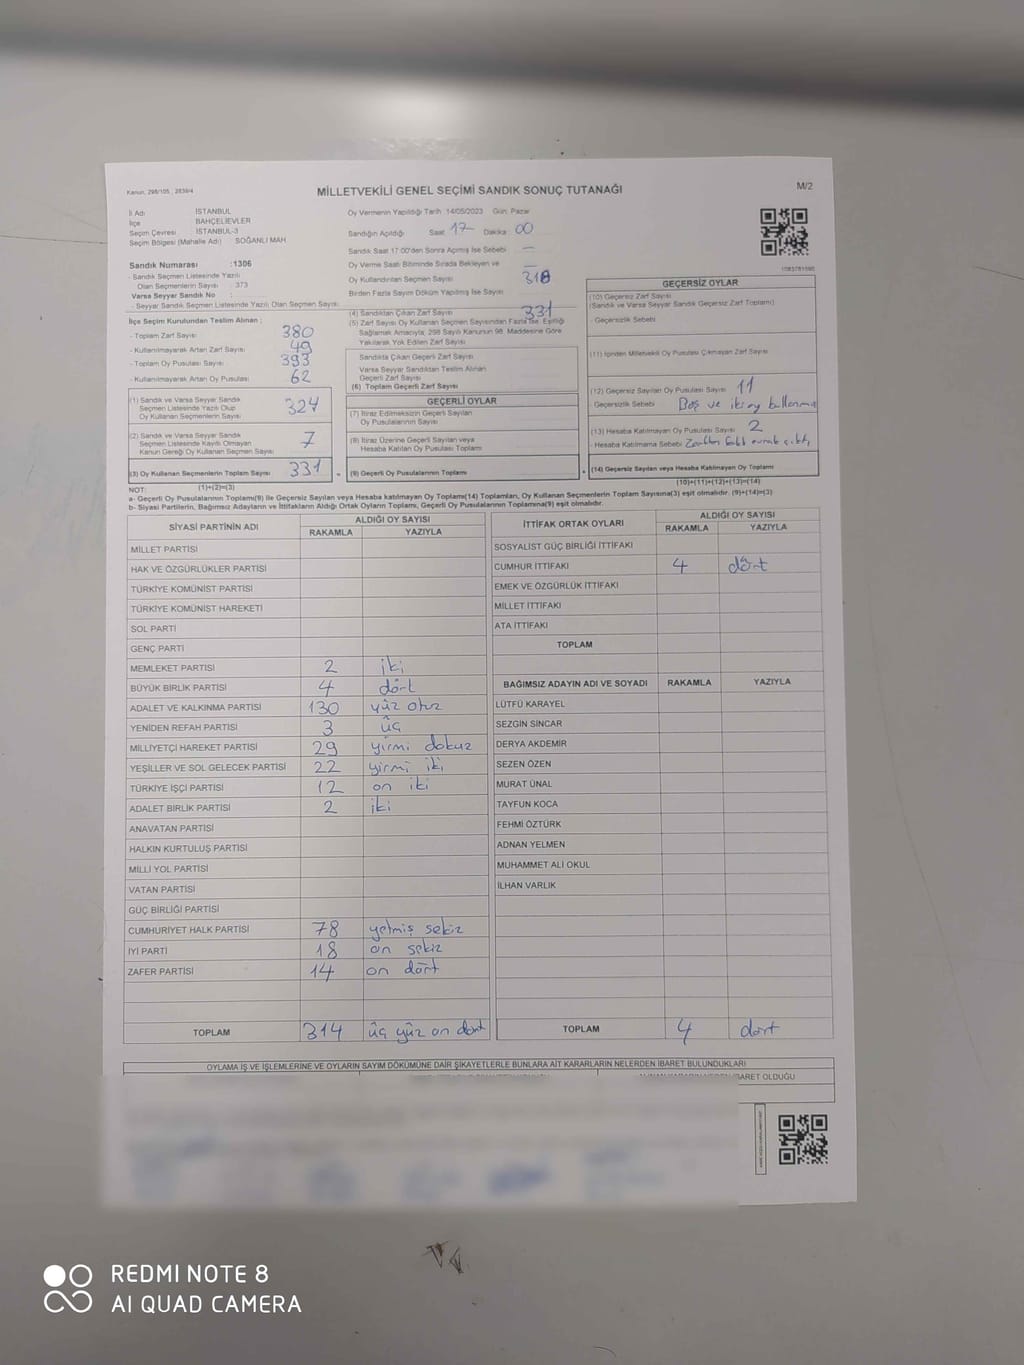 Kanun, 298/105 , 2839/4
MİLLETVEKİLİ GENEL SEÇİMİ SANDIK SONUÇ TUTANAĞI
M/2
İl Adı İSTANBUL
İlçe BAHÇELİEVLER
Seçim Çevresi İSTANBUL-3
Seçim Bölgesi (Mahalle Adı) SOĞANLI MAH
Sandık Numarası :1306
- Sandık Seçmen Listesinde Yazılı
Olan Seçmenlerin Sayısı : 373
Varsa Seyyar Sandık No :
- Seyyar Sandık Seçmen Listesinde Yazılı Olan Seçmen Sayısı:
Oy Vermenin Yapıldığı Tarih :14/05/2023 Gün: Pazar
Sandığın Açıldığı Saat 17 Dakika 00
Sandık Saat 17:00'den Sonra Açılmış İse Sebebi —
Oy Verme Saati Bitiminde Sırada Bekleyen ve —
Oy Kullandırılan Seçmen Sayısı
Birden Fazla Sayım Döküm Yapılmış İse Sayısı 318
İlçe Seçim Kurulundan Teslim Alınan ;
- Toplam Zarf Sayısı 380
- Kullanılmayarak Artan Zarf Sayısı 49
- Toplam Oy Pusulası Sayısı 393
- Kullanılmayarak Artan Oy Pusulası 62
(1) Sandık ve Varsa Seyyar Sandık
Seçmen Listesinde Yazılı Olup
Oy Kullanan Seçmenlerin Sayısı 324
(2) Sandık ve Varsa Seyyar Sandık
Seçmen Listesinde Kayıtlı Olmayan
Kanun Gereği Oy Kullanan Seçmen Sayısı 7
(3) Oy Kullanan Seçmenlerin Toplam Sayısı 331
(1)+(2)=(3)
(4) Sandıktan Çıkan Zarf Sayısı 331
(5) Zarf Sayısı Oy Kullanan Seçmen Sayısından Fazla İse, Eşitliği
Sağlamak Amacıyla, 298 Sayılı Kanunun 98. Maddesine Göre
Yakılarak Yok Edilen Zarf Sayısı
Sandıkta Çıkan Geçerli Zarf Sayısı
Varsa Seyyar Sandıktan Teslim Alınan
Geçerli Zarf Sayısı
(6) Toplam Geçerli Zarf Sayısı
GEÇERLİ OYLAR
(7) İtiraz Edilmeksizin Geçerli Sayılan
Oy Pusulasının Sayısı
(8) İtiraz Üzerine Geçerli Sayılan veya
Hesaba Katılan Oy Pusulası Toplamı
= (9) Geçerli Oy Pusulalarının Toplamı
1083781590
GEÇERSİZ OYLAR
(10) Geçersiz Zarf Sayısı
(Sandık ve Varsa Seyyar Sandık Geçersiz Zarf Toplamı)
- Geçersizlik Sebebi
(11) İçinden Milletvekili Oy Pusulası Çıkmayan Zarf Sayısı
(12) Geçersiz Sayılan Oy Pusulası Sayısı 11
Geçersizlik Sebebi Boş ve iki oy kullanma
(13) Hesaba Katılmayan Oy Pusulası Sayısı 2
Hesaba Katılmama Sebebi
+ (14) Geçersiz Sayılan veya Hesaba Katılmayan Oy Toplamı
(10)+(11)+(12)+(13)=(14)
NOT:
a- Geçerli Oy Pusulalarının Toplamı(9) ile Geçersiz Sayılan veya Hesaba katılmayan Oy Toplamı(14) Toplamları, Oy Kullanan Seçmenlerin Toplam Sayısına(3) eşit olmalıdır. (9)+(14)=(3)
b- Siyasi Partilerin, Bağımsız Adayların ve İttifakların Aldığı Ortak Oyların Toplamı, Geçerli Oy Pusulalarının Toplamına(9) eşit olmalıdır.
SİYASİ PARTİNİN ADI ALDIĞI OY SAYISI
RAKAMLA YAZIYLA
MİLLET PARTİSİ
HAK VE ÖZGÜRLÜKLER PARTİSİ
TÜRKİYE KOMÜNİST PARTİSİ
TÜRKİYE KOMÜNİST HAREKETİ
SOL PARTİ
GENÇ PARTİ
MEMLEKET PARTİSİ 2 iki
BÜYÜK BİRLİK PARTİSİ 4 dört
ADALET VE KALKINMA PARTİSİ 130 yüz otuz
YENİDEN REFAH PARTİSİ 3 üç
MİLLİYETÇİ HAREKET PARTİSİ 29 yirmi dokuz
YEŞİLLER VE SOL GELECEK PARTİSİ 22 yirmi iki
TÜRKİYE İŞÇİ PARTİSİ 12 on iki
ADALET BİRLİK PARTİSİ 2 iki
ANAVATAN PARTİSİ
HALKIN KURTULUŞ PARTİSİ
MİLLİ YOL PARTİSİ
VATAN PARTİSİ
GÜÇ BİRLİĞİ PARTİSİ
CUMHURİYET HALK PARTİSİ 78 yetmiş sekiz
İYİ PARTİ 18 on sekiz
ZAFER PARTİSİ 14 on dört
TOPLAM 314 üç yüz on dört
İTTİFAK ORTAK OYLARI ALDIĞI OY SAYISI
RAKAMLA YAZIYLA
SOSYALİST GÜÇ BİRLİĞİ İTTİFAKI
CUMHUR İTTİFAKI 4 dört
EMEK VE ÖZGÜRLÜK İTTİFAKI
MİLLET İTTİFAKI
ATA İTTİFAKI
TOPLAM
BAĞIMSIZ ADAYIN ADI VE SOYADI RAKAMLA YAZIYLA
LÜTFÜ KARAYEL
SEZGİN SİNCAR
DERYA AKDEMİR
SEZEN ÖZEN
MURAT ÜNAL
TAYFUN KOCA
FEHMİ ÖZTÜRK
ADNAN YELMEN
MUHAMMET ALİ OKUL
İLHAN VARLIK
TOPLAM 4 dört
OYLAMA İŞ VE İŞLEMLERİNE VE OYLARIN SAYIM DÖKÜMÜNE DAİR ŞİKAYETLERLE BUNLARA AİT KARARLARIN NELERDEN İBARET BULUNDUKLARI
İBARET OLDUĞU
REDMI NOTE 8
AI QUAD CAMERA